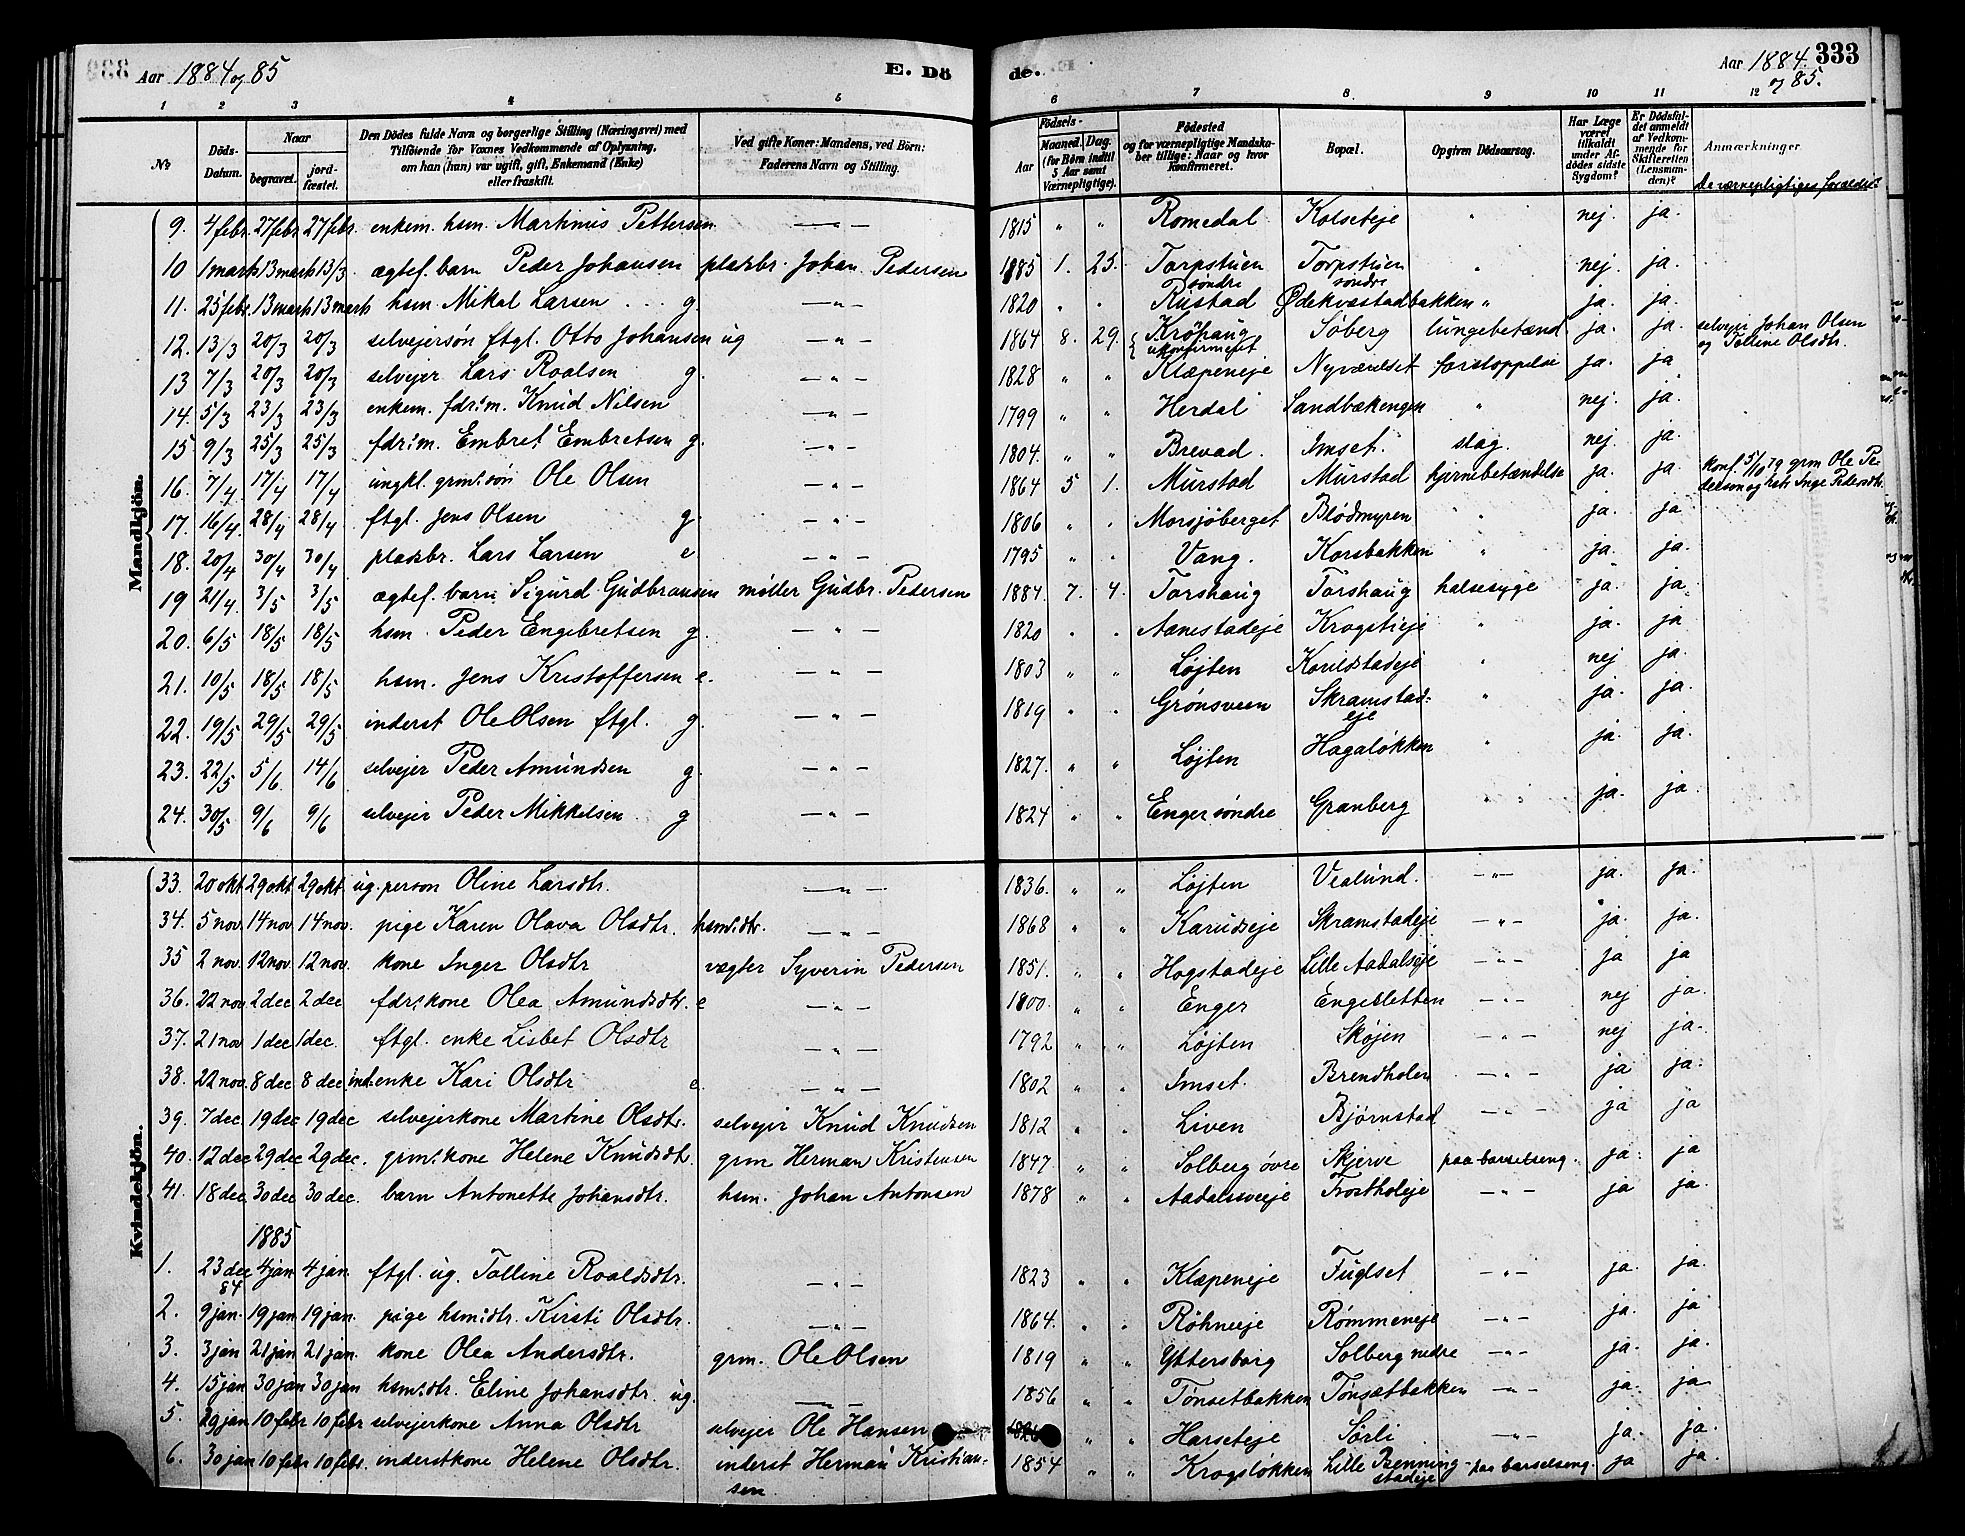 Aar 1884 og 85
E. Dö
de.
Aar 1884 og 85.
333
1 2 3 4 5 6 7 8. 9 10 11 12
№
Döds-Datum.
Naar
begravet.
jord-fæstet.
Den Dödes fulde Navn og borgerlige Stilling (Næringsvei) med
Tilföiende for Voxnes Vedkommende af Oplysning,
om han (hun) var ugift, gift, Enkemand (Enke)
eller fraskilt.
Ved gifte Koner: Mandens, ved Börn:
Faderens Navn og Stilling.
Födsels-
Aar
Maaned. Dag.
(for Börn indtil
5 Aar samt
Værnepligtige).
Födested
og for værnepligtige Mandska-
ber tillige: Naar og hvor
konfirmeret.
Bopæl.
Opgiven Dödsaarsag.
Har Læge
været
tilkaldt
under Af-
dödes sidste
Sygdom?
Er Dödsfal-
det anmeldt
af Vedkom-
mende for
Skifteretten
(Lensman-
den)?
Anmærkninger.
De værnepligtiges forældre?
Mandkjön.
9. 4 febr. 27 febr 27 febr. enkem. hsm. Martinus Pettersen — " — 1815 " " Romedal Kolseteje " nej. ja.
10 1 marts 13 marts 13/3 ægtef. barn Peder Johansen pladsbr. Johan Pedersen 1885 1. 25. Torpstuen søndre Torpstuen søndre " nej. ja.
11. 25 febr. 13 marts 13 marts hsm. Mikal Larsen g. — " — 1820 " " Rustad Ødekvæstadbakken " ja. ja.
12. 13/3 20/3 20/3 selvejersøn ftgl. Otto Johansen ug — " — 1864 8. 29. Krøhaug ukonfirmeret Søberg lungebetænd. ja. ja. selvejer Johan Olsen og Tolline Olsdtr.
13 7/3 20/3 20/3 selvejer Lars Roalsen g. — " — 1828 " " Klæpeneje Nyværelset forstoppelse ja. ja
14. 5/3 23/3 23/3 enkem. fdr:m. Knud Nilsen — " — 1799 " " Herdal Sandbækengen " nej. ja.
15 9/3 25/3 25/3 fdr:m. Embret Embretsen g. — " — 1804. " " Brevad Imset. slag. nej ja.
16. 7/4 17/4 17/4 ungkl. grm:søn Ole Olsen — " — 1864 5 1. Murstad Murstad hjernebetændelse ja. ja. konf. 5/10 79 grm Ole Pedersen og hstr Inge Pedersdtr
17. 16/4. 28/4 28/4 ftgl. Jens Olsen g. — " — 1806 " " Morsjøberget Blødmyren " ja. ja.
18. 20/4 30/4 30/4 pladsbr. Lars Larsen e. — " — 1795 " " Vang. Korsbakken " ja. ja.
19 21/4. 3/5 3/5 ægtef. barn Sigurd Gudbransen møller Gudbr. Pedersen 1884. 7. 4. Torshaug Torshaug halsesyge ja. ja.
20. 6/5 18/5 18/5 hsm. Peder Engebretsen g. — " — 1820 " " Aanestadeje Krogstieje " ja. ja
21. 10/5 18/5 18/5 hsm. Jens Kristoffersen e. — " — 1803 " " Løjten Korildstadeje " nej ja.
22. 19/5 29/5 29/5 inderst Ole Olsen ftgl. g. — " — 1819 " " Grønsveen Skramstadeje " ja. ja.
23. 22/5 5/6. 14/6 selvejer Peder Amundsen g. — " — 1827. " " Løjten Hagaløkken " ja. ja.
24. 30/5 9/6 9/6 selvejer Peder Mikkelsen g — " — 1824 " " Enger søndre Granberg " ja. ja.
Kvindekjön.
33. 20 okt 29 okt 29 okt. ug. person Oline Larsdtr. — " — 1836. " " Løjten Vealund. — " — ja. ja.
34. 5 nov. 14 nov 14 nov. pige Karen Olava Olsdtr. hsm:dtr. — " — 1868 " " Karudseje Skramstadeje — " — ja. ja.
35 2 nov. 12 nov. 12 nov. kone Inger Olsdtr vægter Syverin Pedersen 1851. " " Hogstadeje Lille Aadalseje — " — ja ja
36. 22 nov 2 dec 2 dec fdr:kone Olea Amundsdtr. e — " — 1800. " " Enger Engesletten — " — nej ja.
37. 21 nov 1 dec 1 dec. ftgl. enke Lisbet Olsdtr — " — 1792 " " Løjten Skøjen — " — nej ja.
38. 22 nov. 8 dec 8 dec ind. enke Kari Olsdtr e. — " — 1802 " " Imset. Brendholen — " — ja ja.
39. 7 dec. 19 dec 19 dec selvejerkone Martine Olsdtr. selvejer Knud Knudsen 1812 " " Liven Bjørnstad — " — ja ja
40. 12 dec 29 dec 29 dec. grm:kone Helene Knudsdtr. grm Herman Kristensen 1847. " " Solberg øvre Skjerve paa barselseng. ja. ja
41. 18 dec. 30 dec 30 dec. barn Antonette Johansdtr. hsm. Johan Antonsen 1878 " " Aadalsveeje Frostholeje — " — ja ja.
1885
1. 23 dec 84 4 jan 4 jan. ftgl. ug. Tolline Roaldsdtr. — " — 1823 " " Klæpeneje Fuglset — " — ja. ja.
2. 9 jan. 19 jan 19 jan. pige hsm:dtr. Kirsti Olsdtr. — " — 1864. " " Røhneeje Rømmeneje — " — ja. ja
3. 3 jan 21 jan 21 jan. kone Olea Andersdtr. grm. Ole Olsen 1819 " " Yttersborg Solberg nedre — " — ja. ja.
4. 15 jan 30 jan 30 jan hsm:dtr. Eline Johansdtr. ug. — " — 1856 " " Tønsetbakken Tønsætbakken — " — ja. ja
5. 29 jan 10 febr 10 febr selvejerkone Anna Olsdtr selvejer Ole Hansen " " Harseteje Sørli — " — ja. ja.
6. 30 jan 10 febr 10 febr. inderstkone Helene Olsdtr. inderst Herman Kristiansen 1854 " " Krogsløkken Lille Benningstadeje paa barselseng. ja ja.